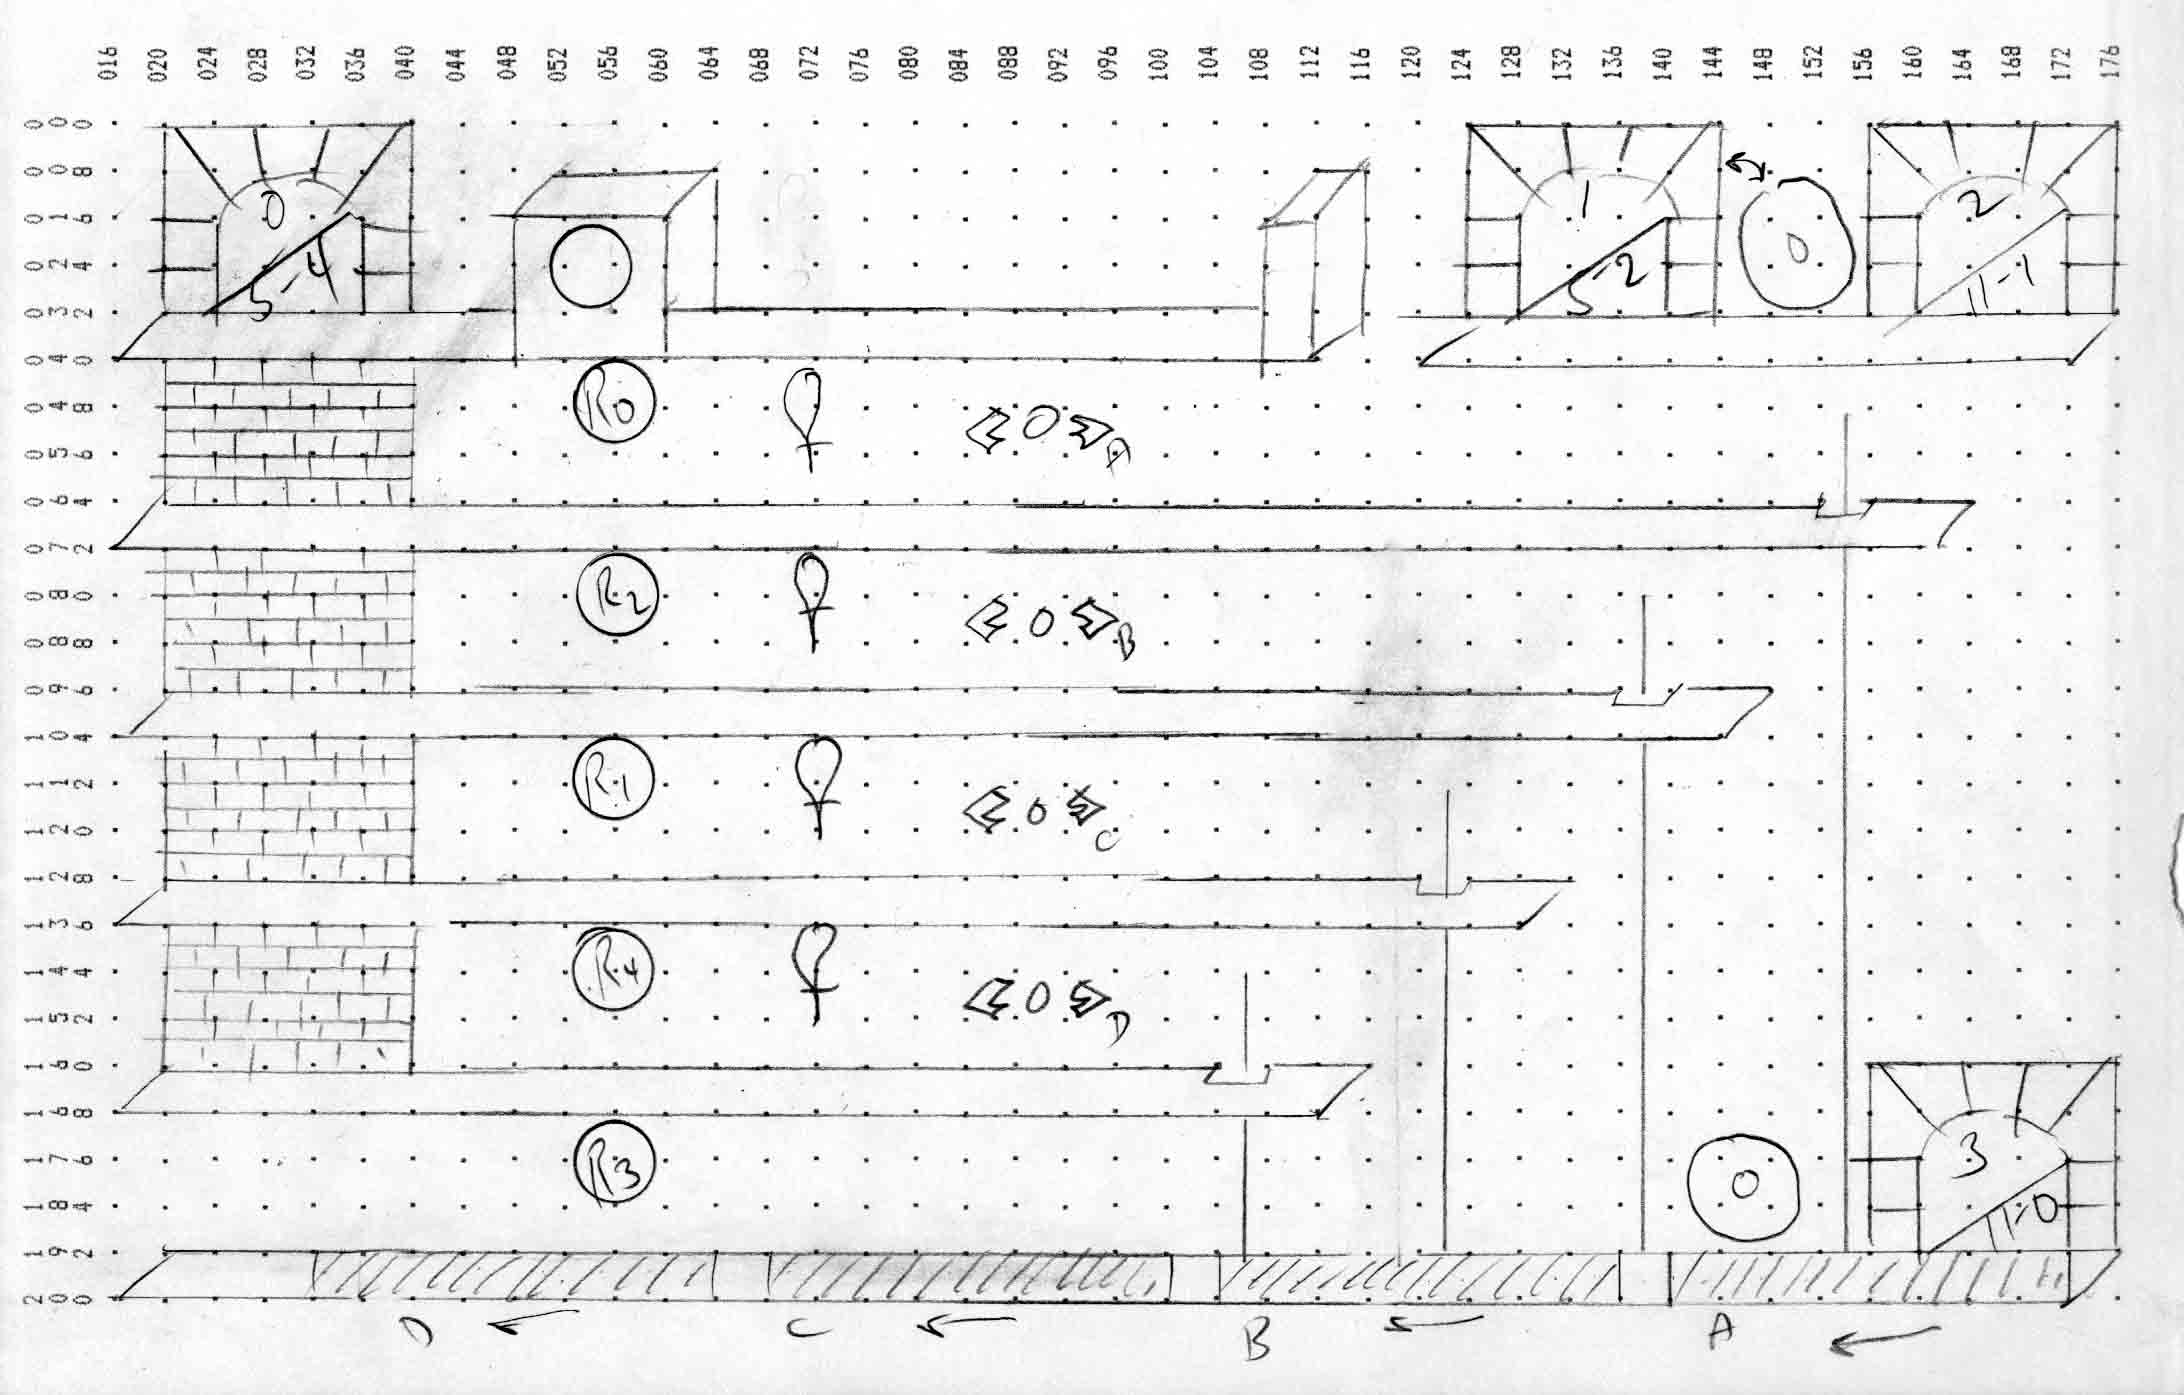 016 020 024 028 032 036 040 044 048 052 056 060 064 068 072 076 080 084 088 092 096 100 104 108 112 116 120 124 128 132 136 140 144 148 152 156 160 164 168 172 176
000
008
016
024
032
040
048
056
064
072
080
088
096
104
112
120
128
136
144
152
160
168
176
184
192
200
0
5-4
1
5-2
0
2
11-1
R0
0
R2
0 B
R1
0 C
R4
0 D
R3
0
3
11-0
D C B A